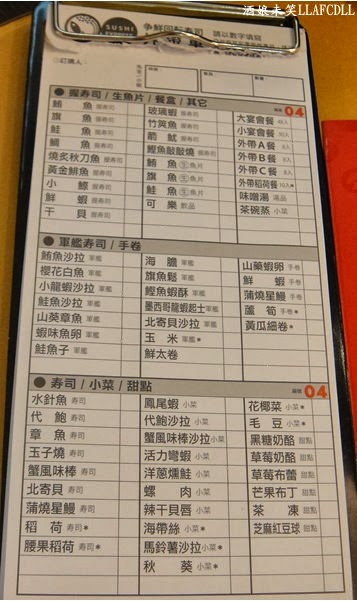 酒娘未笑LLAFCDLL
SUSHI EXPRESS 爭鮮回轉壽司 請以數字填寫
◎訂購人：
先生/小姐
● 握壽司/生魚片/餐盒/其它 04
鮪魚 握壽司
旗魚 握壽司
鮭魚 握壽司
鯛魚 握壽司
燒炙秋刀魚 握壽司
黃金鯡魚 握壽司
小鰶 握壽司
鮮蝦 握壽司
干貝 握壽司
玻璃蝦 握壽司
竹筴魚 握壽司
箭魷 握壽司
鰹魚敲敲燒 握壽司
鮪魚 生魚片
旗魚 生魚片
鮭魚 生魚片
可樂 飲品
大宴會餐
小宴會餐
外帶A餐
外帶B餐
外帶C餐
外帶稻荷餐
味噌湯 湯品
茶碗蒸 小菜
● 軍艦壽司/手卷
鮪魚沙拉 軍艦
櫻花白魚 軍艦
小龍蝦沙拉 軍艦
鮭魚沙拉 軍艦
山葵章魚 軍艦
蝦味魚卵 軍艦
鮭魚子 軍艦
海膽 軍艦
旗魚鬆 軍艦
鰹魚蝦酥 軍艦
墨西哥龍蝦起士 軍艦
北寄貝沙拉 軍艦
玉米 軍艦*
鮮太卷
山藥蝦卵 手卷
鮮蝦 手卷
蒲燒星鰻 手卷
蘆筍 手卷*
黃瓜細卷*
● 壽司/小菜/甜點 04
水針魚 壽司
代鮑 壽司
章魚 壽司
玉子燒 壽司
蟹風味棒 壽司
北寄貝 壽司
蒲燒星鰻 壽司
稻荷 壽司*
腰果稻荷 壽司*
鳳尾蝦 小菜
代鮑沙拉 小菜
蟹風味沙拉 小菜
活力彎蝦 小菜
洋蔥燻鮭 小菜
螺肉 小菜
辣干貝唇 小菜
海帶絲 小菜*
馬鈴薯沙拉 小菜*
秋葵 小菜*
花椰菜 小菜*
毛豆 小菜*
黑糖奶酪 甜點
草莓奶酪 甜點
草莓布蕾 甜點
芒果布丁 甜點
茶凍 甜點
芝麻紅豆球 甜點